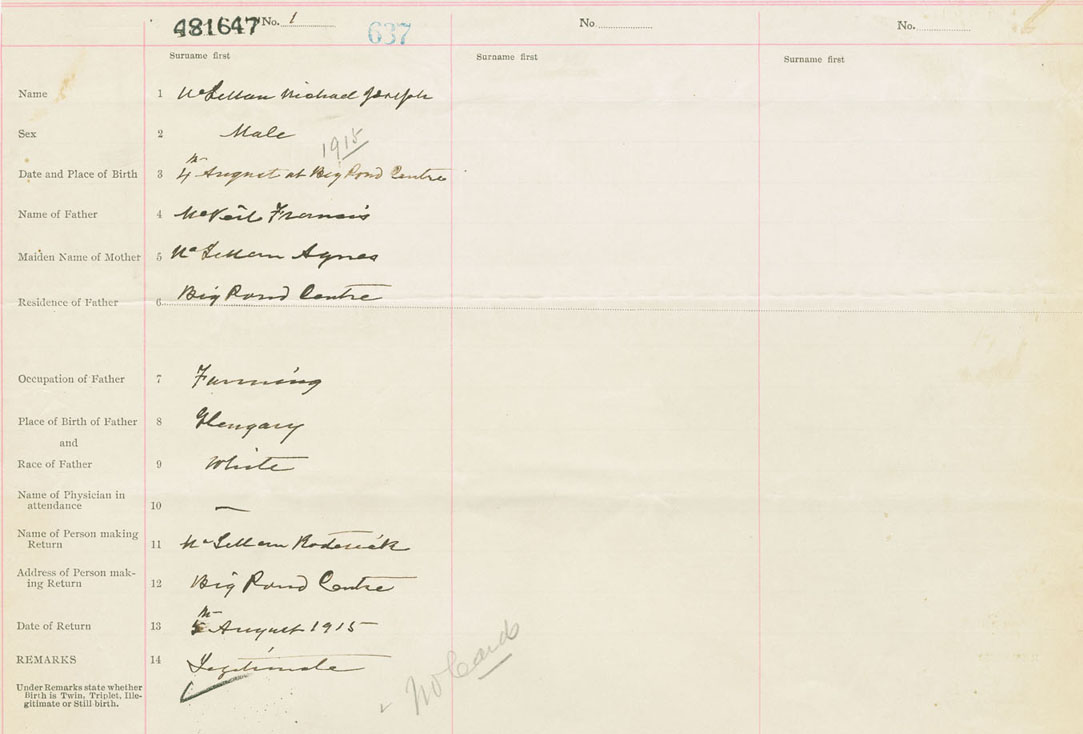 481647 No. 1 637 No No.
Surname first Surname first Surname first
Name 1 McLellan Michael Joseph
Sex 2 Male
1915
Date and Place of Birth 3 4th August at Big Pond Centre
Name of Father 4 McNeil Francis
Maiden Name of Mother 5 McLellan Agnes
Residence of Father 6 Big Pond Centre
Occupation of Father 7 Farming
Place of Birth of Father 8 Glengary
and
Race of Father 9 White
Name of Physician in
attendance 10 —
Name of Person making
Return 11 McLellan Roderick
Address of Person mak-
ing Return 12 Big Pond Centre
Date of Return 13 5th August 1915
REMARKS 14 Legitimate
Under Remarks state whether
Birth is Twin, Triplet, Ille-
gitimate or Still-birth.
No Card